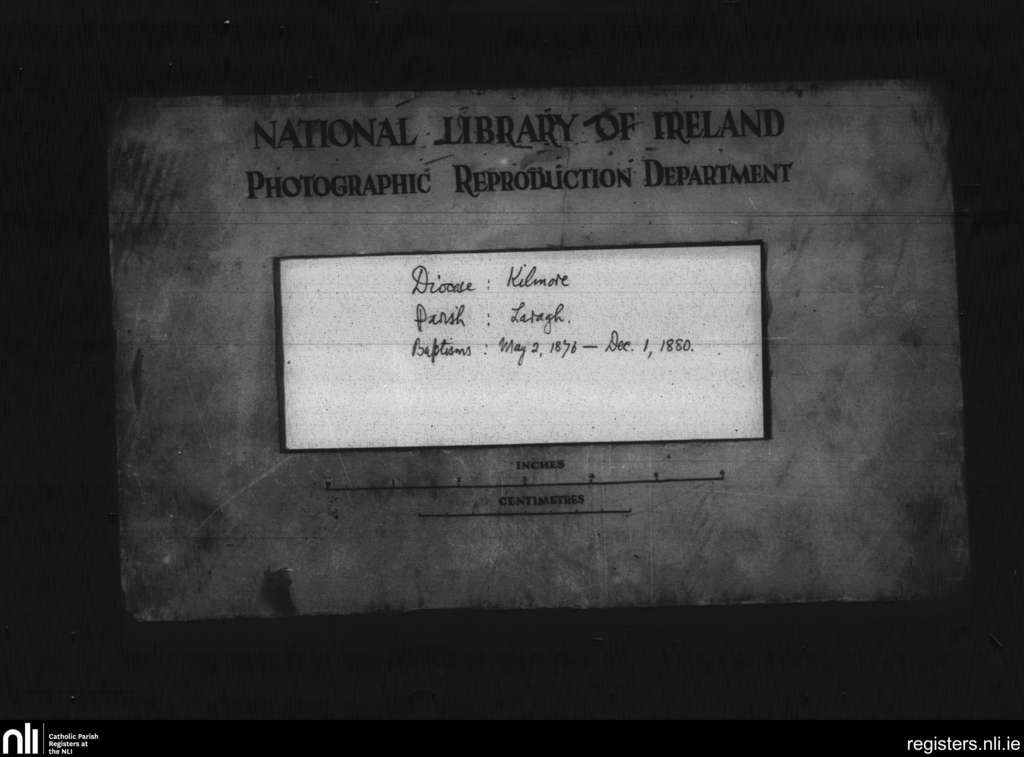 NATIONAL LIBRARY OF IRELAND
PHOTOGRAPHIC REPRODUCTION DEPARTMENT
Diocese : Kilmore
Parish : Laragh.
Baptisms : May 2, 1876 — Dec. 1, 1880.
INCHES
CENTIMETRES
nli
Catholic Parish
Registers at
the NLI
registers.nli.ie